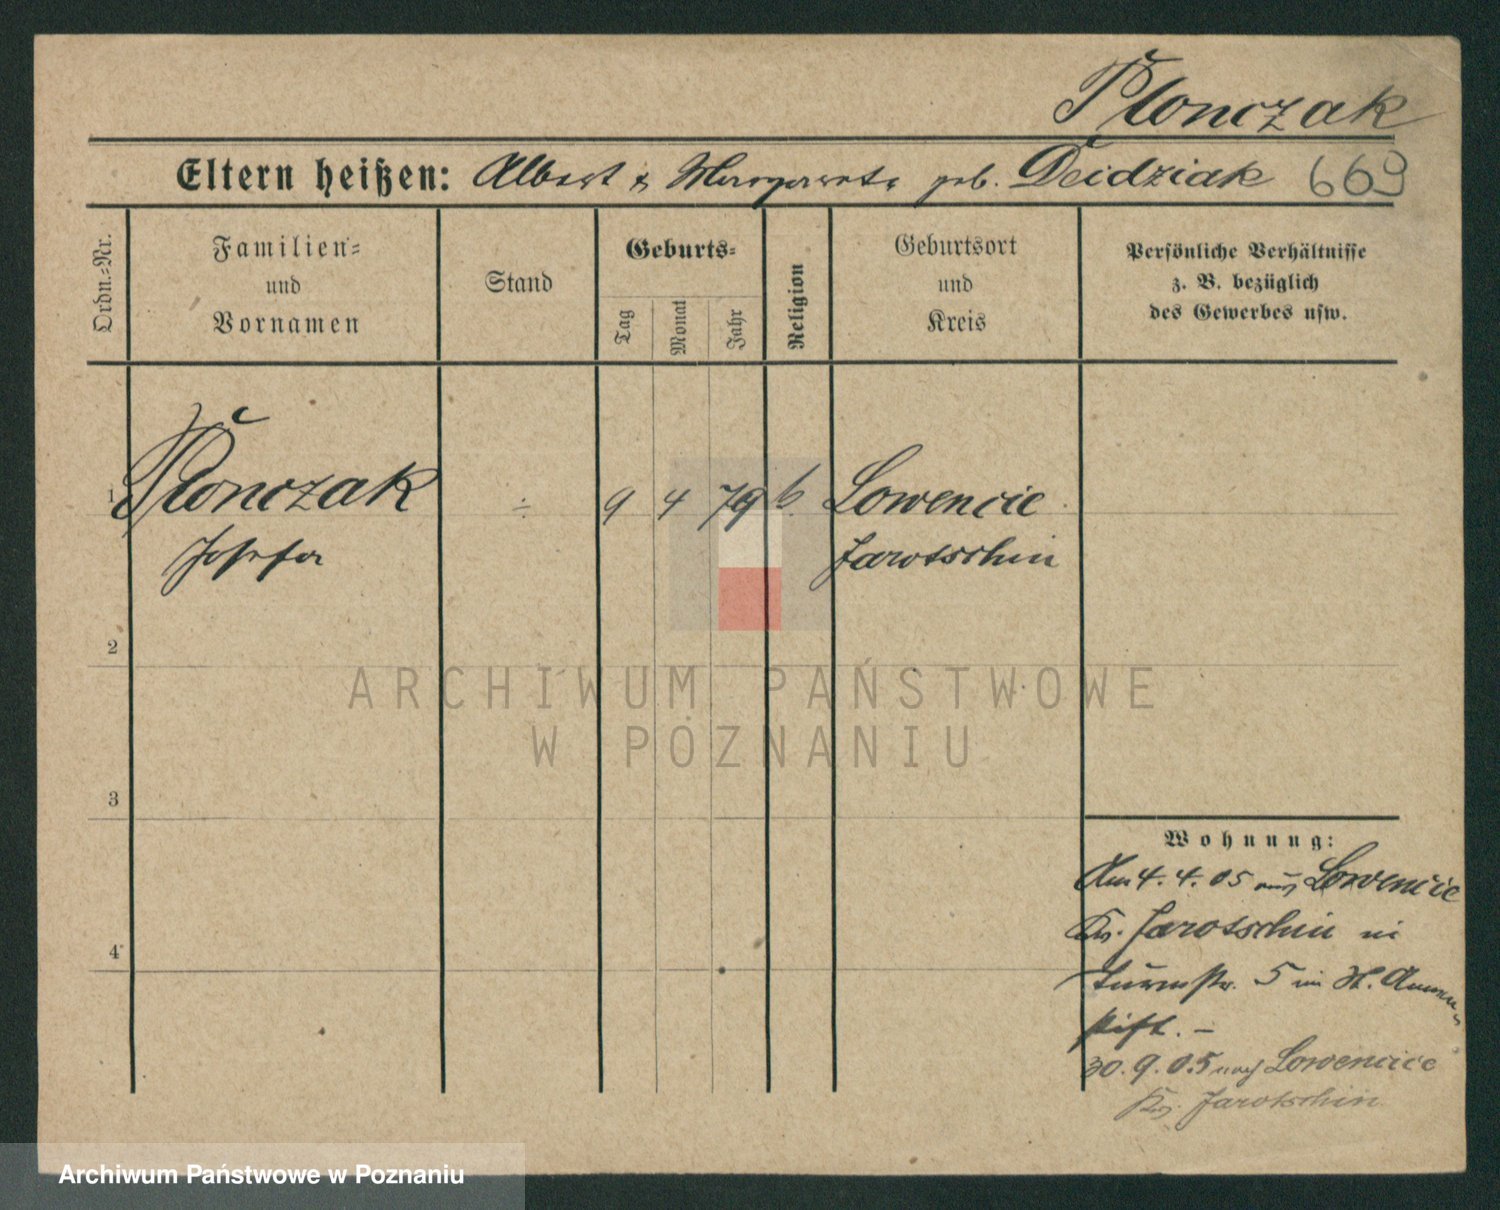 Plonczak
Eltern heißen: Albert & Margareta geb. Deidziak 669
Ordn.-Nr.
Familien-
und
Vornamen
Stand
Geburts-
Tag
Monat
Jahr
Religion
Geburtsort
und
Kreis
Persönliche Verhältnisse
z. B. bezüglich
des Gewerbes usw.
1 Plonczak ÷ 9 4 79 k. Lowencic
Josefa Jarotschin
2
3
4
Wohnung:
Am 4. 4. 05 aus Lowencic
Krs. Jarotschin in
Turmstr. 5 im St. Annen-
stift. —
30. 9. 05 nach Lowencice
Krs. Jarotschin
ARCHIWUM PAŃSTWOWE
W POZNANIU
Archiwum Państwowe w Poznaniu